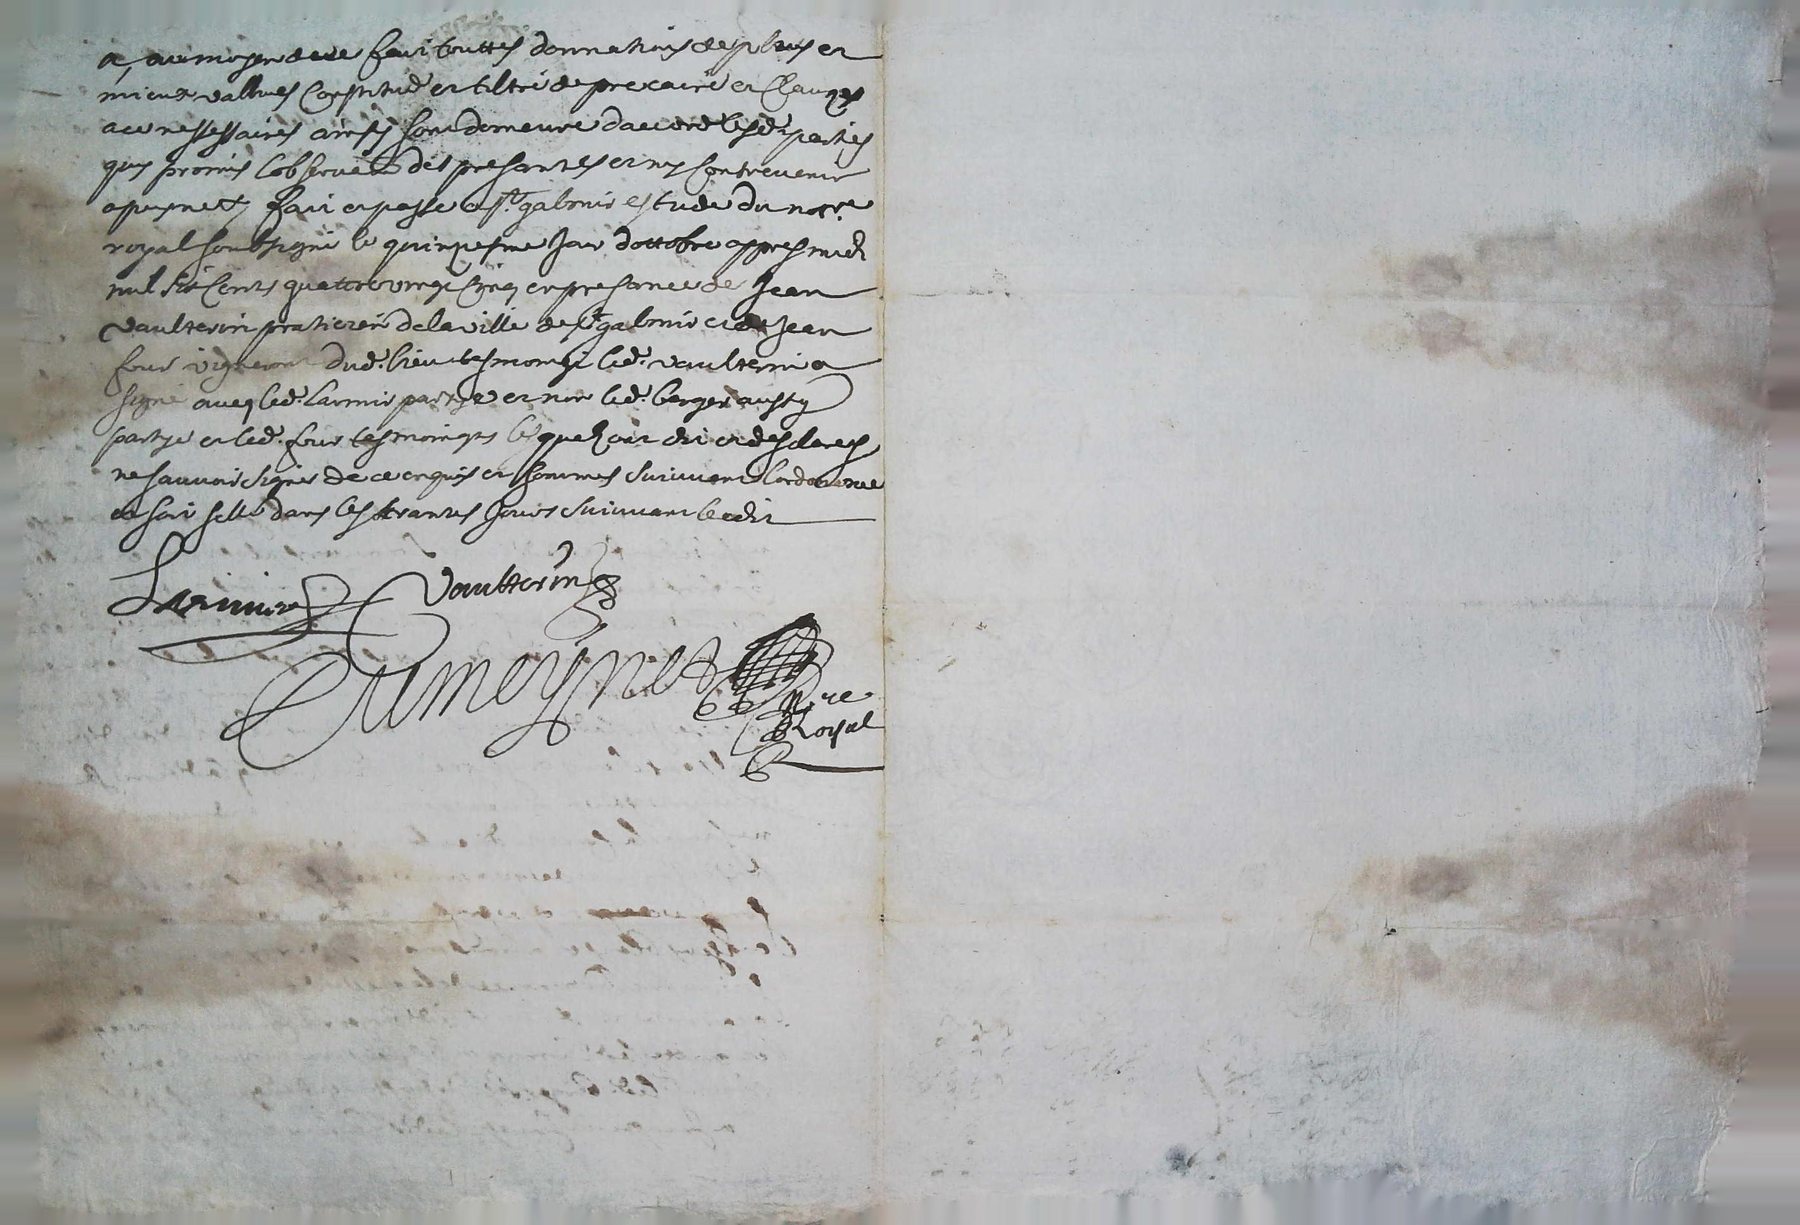 a, au moyen de ce fait touttes donnations de plus et
mieux vallues constitud et tiltre de precaire et clauzes
a ce nessessaires ainsy sont demeuré d'accord lesd. parties
quy promis l'observer des presantes et ny contrevenir
a peyne &c fait et passé a St galmier estude du nore
royal soubsigné le quinzesme jour d'ottobre appres midi
mil six cents quattre vingt cinq en presance de Jean
Vaulterin praticien de la ville de St galmier et de Jean
four vigneron dud. lieu tesmoingz led. vaulterin a
signé aveq led. Larmier partye et non led. berger aussy
partye et led. four tesmoingts lesquelz ont dit et desclarez
ne sauvoir signer de ce enquis et sommes suivvant l'ordonance
et soit sellé dans les trantes jours suivvant ledit
Larmier
Vaulterin
Dumeynet
Nre
Royal